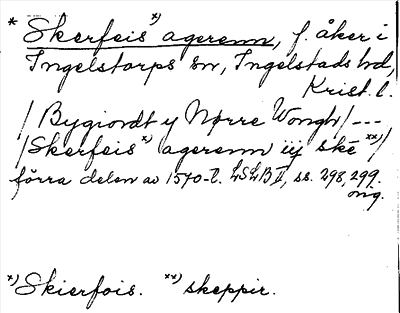 * Skerfeis x) agerenn, f. åker i
Ingelstorps sn, Ingelstads hd,
Krist. l.
/ Bygiordt y Nørre Wongh/ ---
/Skerfeis x) agerenn iij skē xx)/
förra delen av 1570-t. LSLB II, ss. 298, 299.
orig.
x) Skierfois. xx) skeppir.